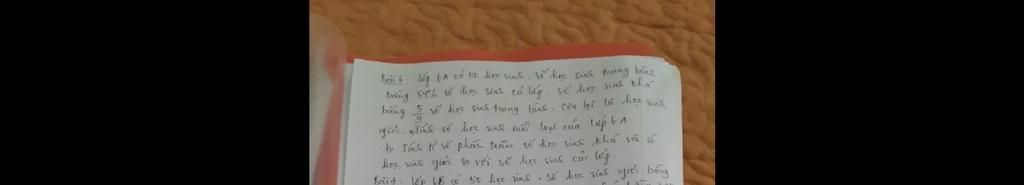 Bài 6. Lớp 6A có 50 học sinh. Số học sinh trung bình
bằng 54% số học sinh cả lớp. số học sinh khá
bằng 5/9 số học sinh trung bình. Còn lại là học sinh
giỏi. a, Tính số học sinh mỗi loại của lớp 6A.
b, Tính tỉ số phần trăm số học sinh khá và số
học sinh giỏi so với số học sinh cả lớp.
Bài 7. Lớp 6B có 50 học sinh. Số học sinh giỏi bằng